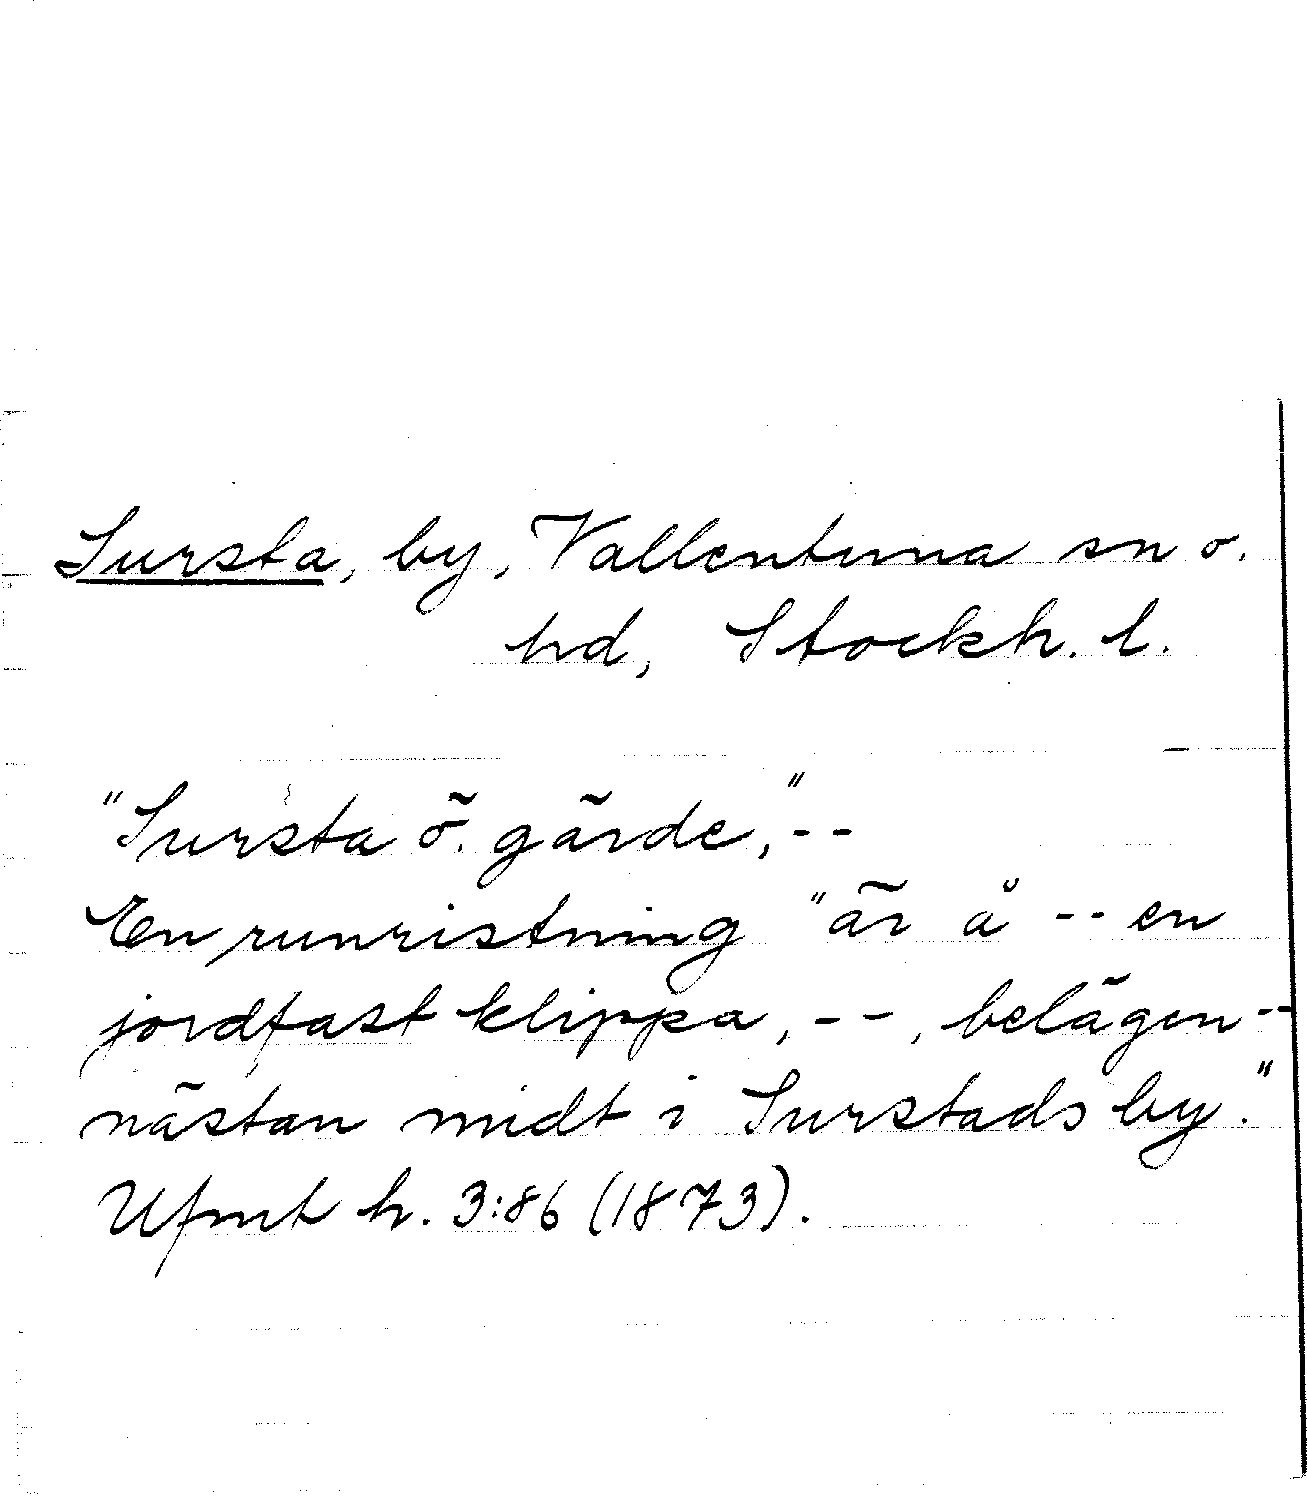 Sursta, by, Vallentuna sn o.
hd, Stockh. l.
"Sursta ö. gärde," --
En runristning "är å" -- en
jordfast klippa, --, belägen --
nästan midt i Surstads by."
Ufmt h. 3:86 (1873).